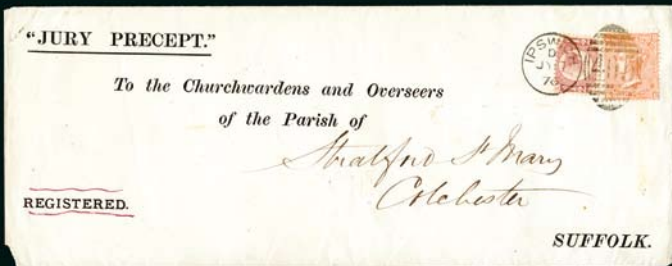 "JURY PRECEPT."
IPSWICH
D
JY
76
To the Churchwardens and Overseers
of the Parish of
Stratford St Mary
Colchester
REGISTERED.
SUFFOLK.